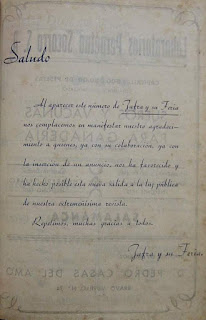 Saludo
Al aparecer este número de Zafra y su Feria
nos complacemos en manifestar nuestro agradeci-
miento a quienes, ya con su colaboración, ya con
la inserción de sus anuncios, nos ha favorecido y
ha hecho posible esta nueva salida a la luz pública de
nuestra extremeñísima revista.
Repetimos, muchas gracias a todos.
Zafra y su Feria